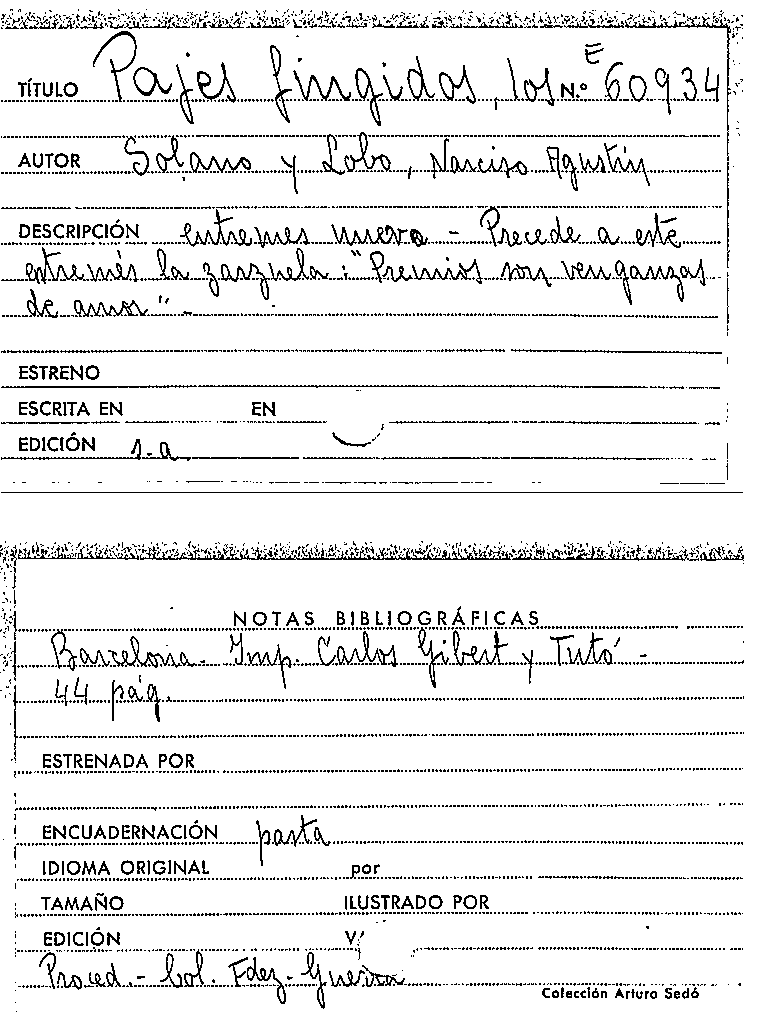 TÍTULO Pajes fingidos, los N.º E 60934
AUTOR Solano y Lobo, Narciso Agustín
DESCRIPCIÓN entremes nuevo - Precede a este
estremés la zarzuela: "Premios son venganzas
de amor" -
ESTRENO
ESCRITA EN EN
EDICIÓN s.a.
NOTAS BIBLIOGRÁFICAS
Barcelona. Imp. Carlos Gibert y Tutó -
44 pág.
ESTRENADA POR
ENCUADERNACIÓN pasta
IDIOMA ORIGINAL por
TAMAÑO ILUSTRADO POR
EDICIÓN V
Proced. - Col. Fdez-Guerra
Colección Arturo Sedó